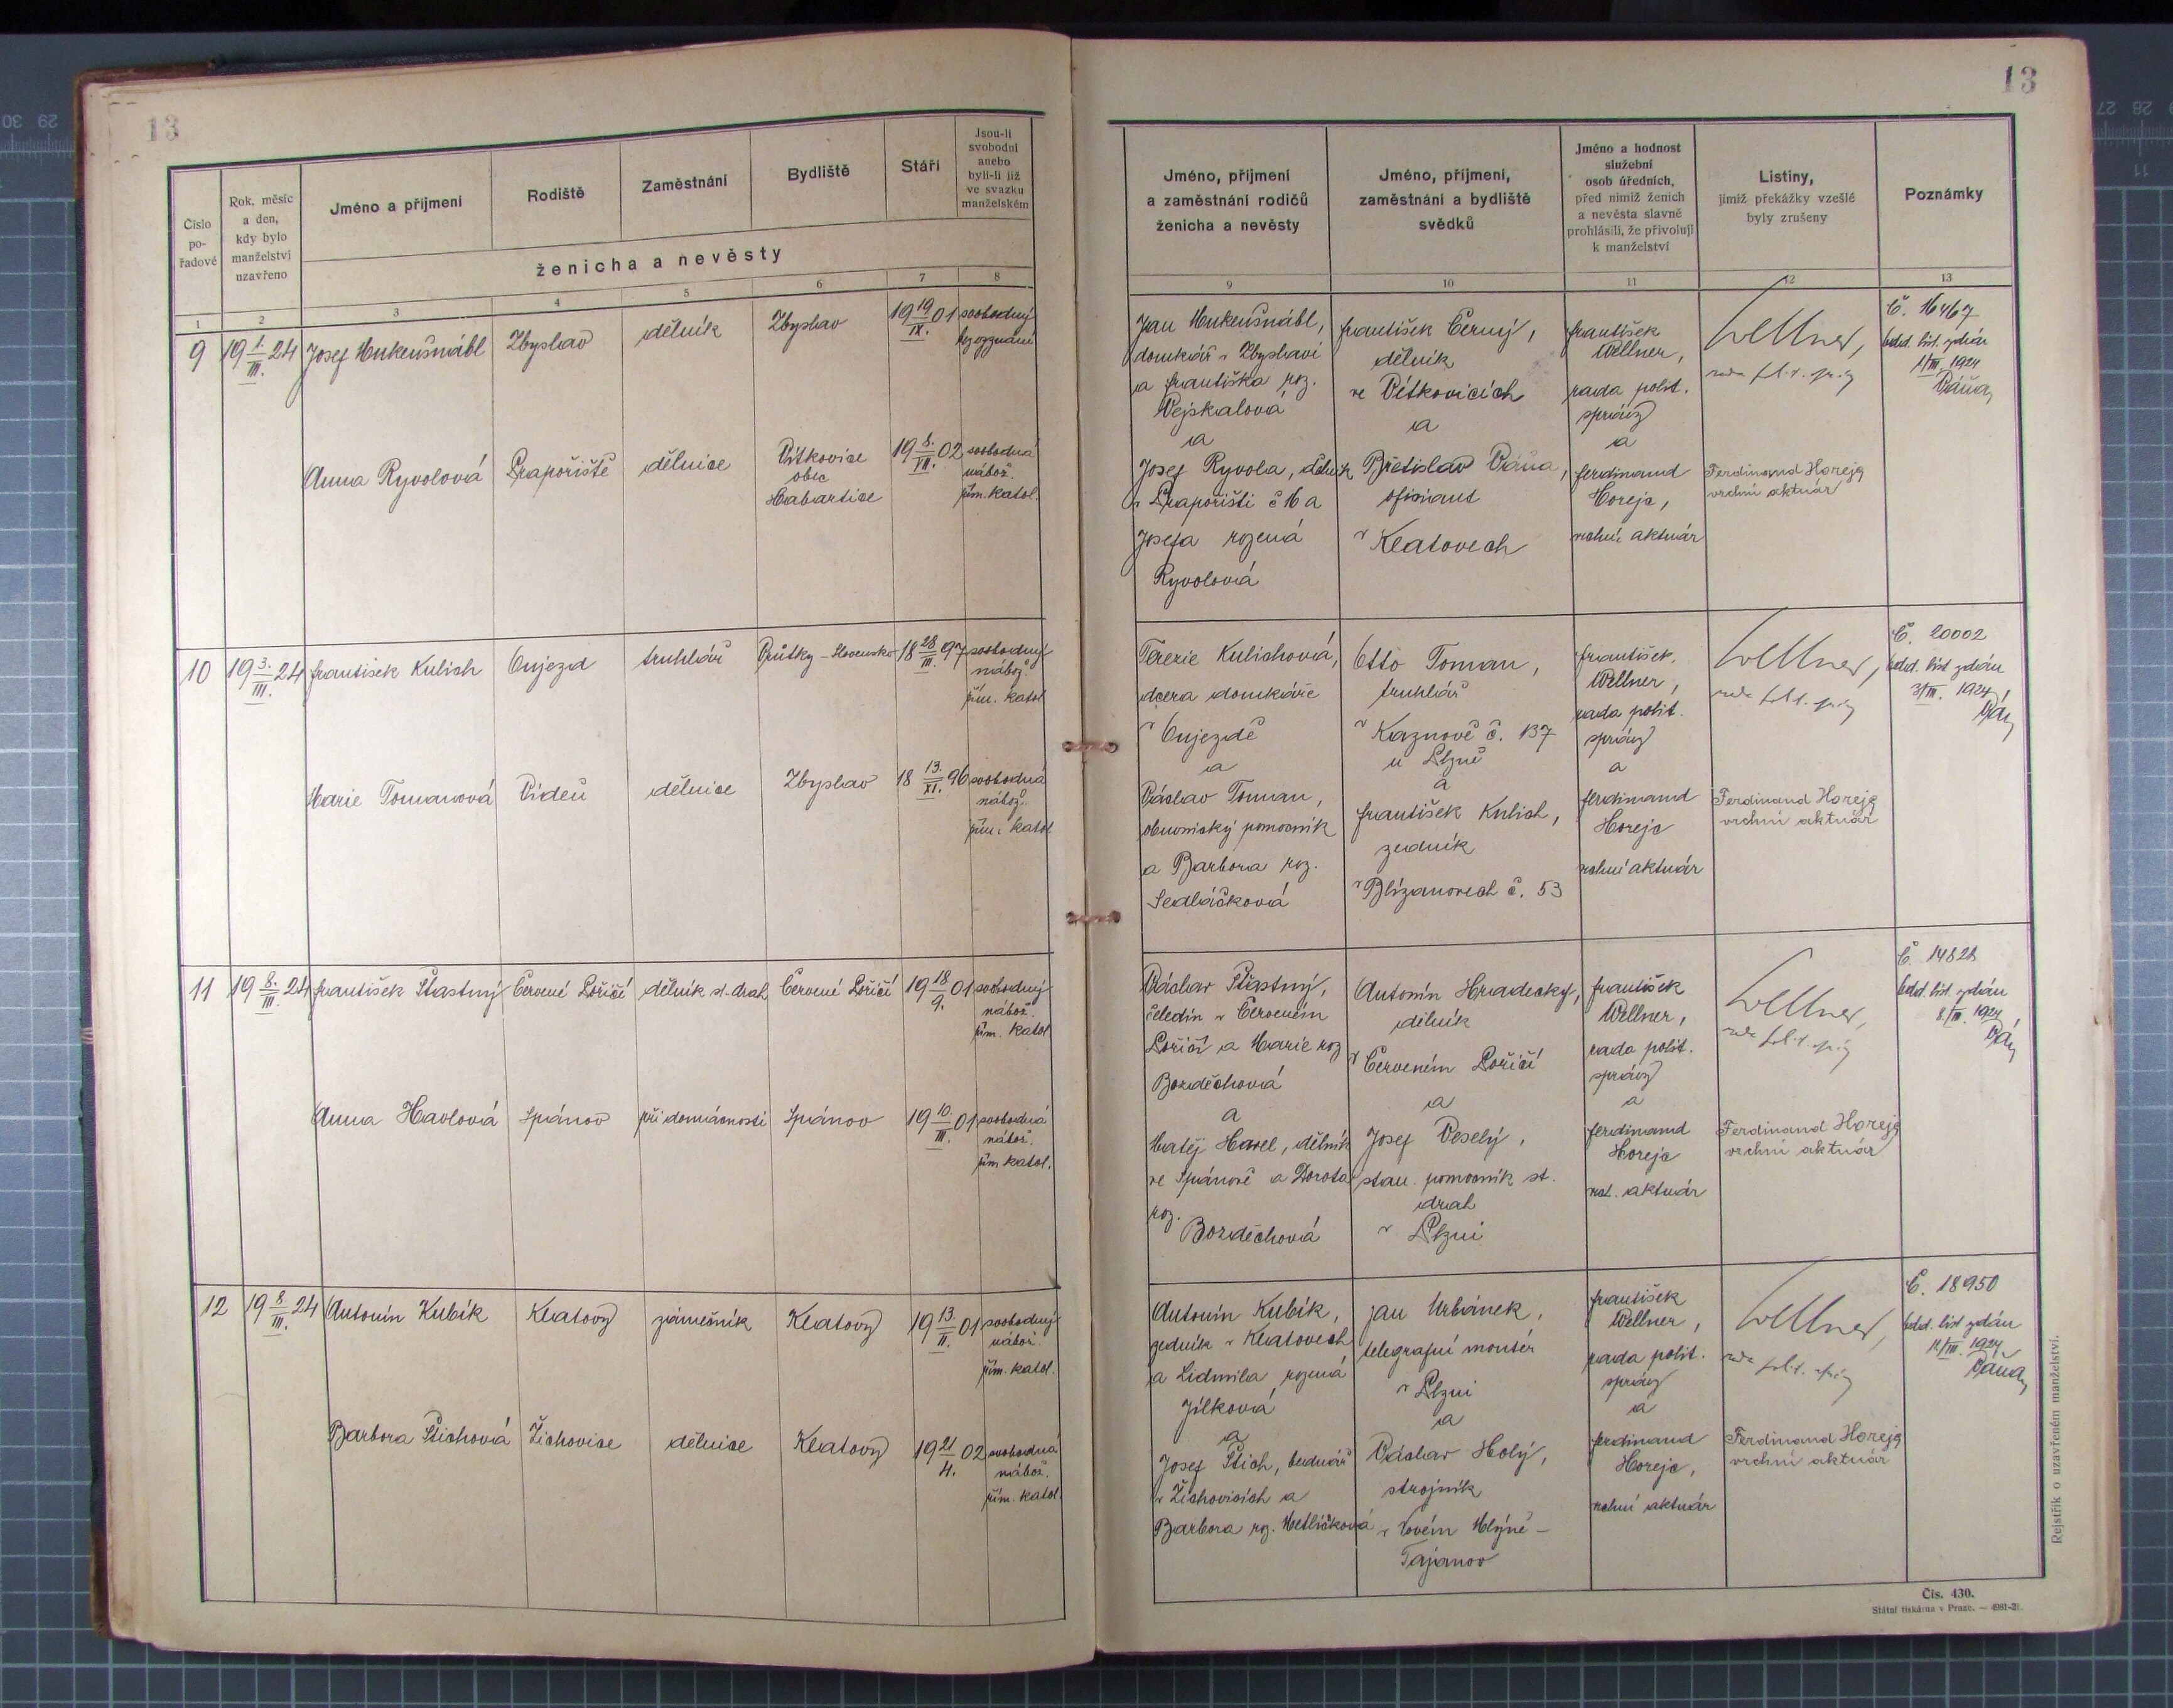 13
13
Číslo
po-
řadové
Rok, měsíc
a den,
kdy bylo
manželství
uzavřeno
Jméno a příjmení
Rodiště
Zaměstnání
Bydliště
Stáří
Jsou-li
svobodni
anebo
byli-li již
ve svazku
manželském
ženicha a nevěsty
Jméno, příjmení
a zaměstnání rodičů
ženicha a nevěsty
Jméno, příjmení,
zaměstnání a bydliště
svědků
Jméno a hodnost
služební
osob úředních,
před nimiž ženich
a nevěsta slavně
prohlásili, že přivolují
k manželství
Listiny,
jimiž překážky vzešlé
byly zrušeny
Poznámky
1 2 3 4 5 6 7 8
9 10 11 12 13
9
19 1./III. 24
Josef
Zbyslav
dělník
Zbyslav
19 19/IX. 01
svobodný
bez vyznání
Anna Ryvolová
Prapořiště
dělnice
Vítkovice
obec
Habartice
19 8./VII. 02
svobodná
nábož.
řím. katol.
Jan
domkář v Zbyslavi
a Františka roz.
Vejskalová
a
Josef Ryvola, dělník
v Prapořišti č 16 a
Josefa rozená
Ryvolová
František Černý,
dělník
ve Vítkovicích
a
Břetislav Váňa,
oficiant
v Klatovech
František
Wellner,
rada polit.
správy
a
Ferdinand
Horejc,
vrchní aktuár
Wellner,
rada polit. správy
Ferdinand Horejc
vrchní aktuár
Č. 16467
odd. list vydán
1/III. 1924
Váňa
10
19 3./III. 24
František Kulich
Oujezd
truhlář
Vrútky - Slovensko
18 28/III. 97
svobodný
nábož.
řím. katol
Marie Tomanová
Vídeň
dělnice
Zbyslav
18 13./XI. 96
svobodná
nábož.
řím. katol
Terezie Kulichová,
dcera domkáře
v Oujezdě
a
Václav Toman,
obuvnický pomocník
a Barbora roz.
Sedláčková
Otto Toman,
truhlář
v Kaznově č. 137
u Plzně
a
František Kulich,
zedník
v Blízanovech č. 53
František
Wellner,
rada polit.
správy
a
Ferdinand
Horejc
vrchní aktuár
Wellner,
rada polit. správy
Ferdinand Horejc
vrchní aktuár
Č. 20002
odd. list vydán
3/III. 1924
11
19 8./III. 24
František Šťastný
Červené Poříčí
dělník st. drah
Červené Poříčí
19 18/9. 01
svobodný
nábož.
řím. katol
Anna Havlová
Spáňov
při domácnosti
Spáňov
19 10./III. 01
svobodná
nábož.
řím katol.
Václav Šťastný,
čeledín v Červeném
Poříčí a Marie roz
Bozděchová
a
Matěj Havel, dělník
ve Spáňově a Dorota
roz.
Bozděchová
Antonín Hradecký,
dělník
v Červeném Poříčí
a
Josef Veselý,
stan. pomocník st.
drah
v Plzni
František
Wellner,
rada polit.
správy
a
Ferdinand
Horejc
vrch. aktuár
Wellner,
rada polit. správy
Ferdinand Horejc
vrchní aktuár
Č 14828
odd. list vydán
8./III. 1924
12
19 8./III. 24
Antonín Kubík
Klatovy
zámečník
Klatovy
19 13./II. 01
svobodný
nábož.
řím. katol.
Barbora Štichová
Žichovice
dělnice
Klatovy
19 21/4. 02
svobodná
nábož.
řím. katol.
Antonín Kubík,
zedník v Klatovech
a Lidmila rozená
Jílková
a
Josef Štich, bednář
v Žichovicích a
Barbora roz. Metličková
Jan Urbánek,
telegrafní montér
v Plzni
a
Václav Holý,
strojník
v Novém Mlýně -
Tajanov
František
Wellner,
rada polit.
správy
a
Ferdinand
Horejc,
vrchní aktuár
Wellner,
rada polit. správy
Ferdinand Horejc
vrchní aktuár
Č. 18950
odd. list vydán
/III. 1924
Váňa
Rejstřík o uzavřeném manželství.
Čís. 430.
Státní tiskárna v Praze. — 4981-21.